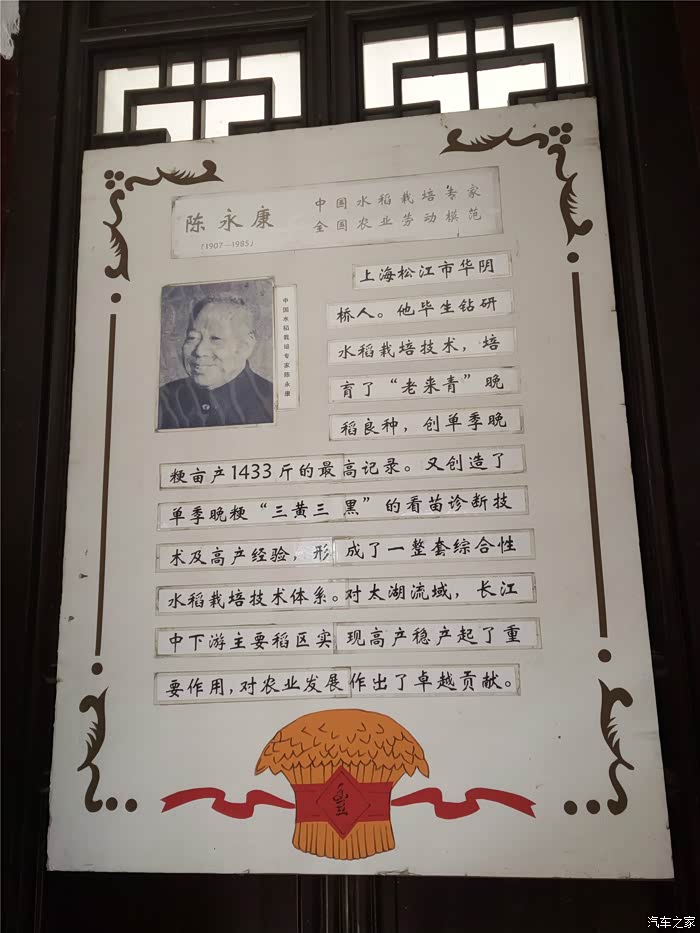 陈永康
中国水稻栽培专家
全国农业劳动模范
(1907—1985)
中国水稻栽培专家陈永康
上海松江市华阴
桥人。他毕生钻研
水稻栽培技术，培
育了“老来青”晚
稻良种，创单季晚
粳亩产1433斤的最高记录。又创造了
单季晚粳“三黄三黑”的看苗诊断技
术及高产经验，形成了一整套综合性
水稻栽培技术体系。对太湖流域，长江
中下游主要稻区实现高产稳产起了重
要作用，对农业发展作出了卓越贡献。
汽车之家